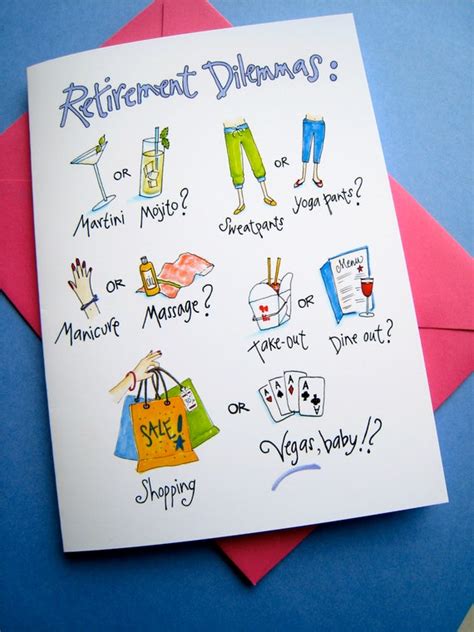 Retirement Dilemmas:
OR
Martini Mojito?
OR
Sweatpants Yoga pants?
OR
Manicure Massage?
OR
Take-out Dine out?
Menu
SALE!
OR
Shopping
Vegas, baby!?